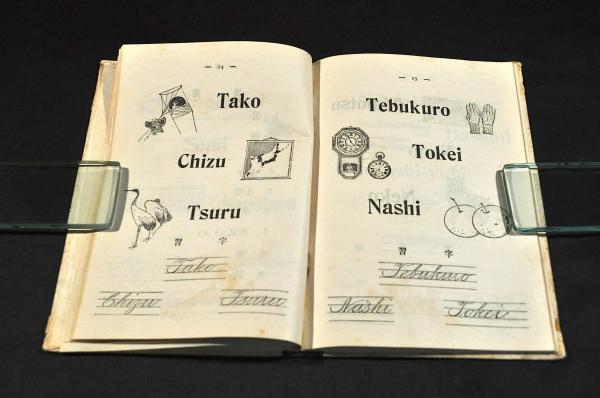 — 24 —
Tako
Chizu
Tsuru
習 字
Tako
Chizu Tsuru
— 25 —
Tebukuro
Tokei
Nashi
習 字
Tebukuro
Nashi Tokei